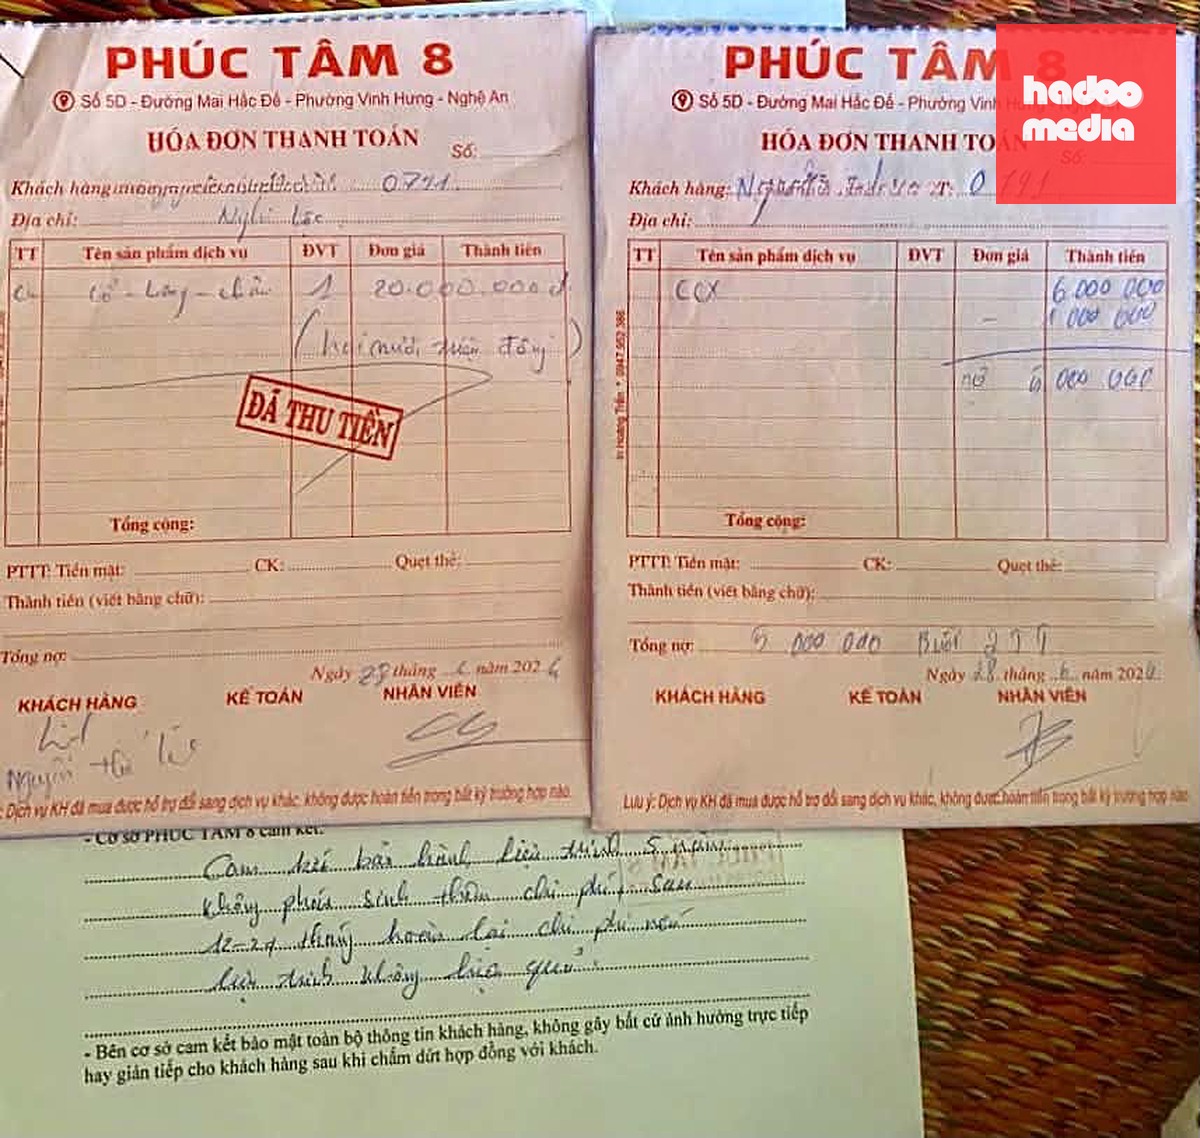 PHÚC TÂM 8
Số 5D - Đường Mai Hắc Đế - Phường Vinh Hưng - Nghệ An
HÓA ĐƠN THANH TOÁN
Số:
Khách hàng
Địa chỉ: Nghi Lộc
TT Tên sản phẩm dịch vụ ĐVT Đơn giá Thành tiền
Cổ - lưng - chân 1 20.000.000đ
(hai mươi triệu đồng)
ĐÃ THU TIỀN
Tổng cộng:
PTTT: Tiền mặt: CK: Quẹt thẻ:
Thành tiền (viết bằng chữ):
Tổng nợ:
Ngày tháng năm 202
KHÁCH HÀNG KẾ TOÁN NHÂN VIÊN
Nguyễn thị
Dịch vụ KH đã mua được hỗ trợ đổi sang dịch vụ khác, không được hoàn tiền trong bất kỳ trường hợp nào.
PHÚC TÂM 8
Số 5D - Đường Mai Hắc Đế - Phường Vinh
HÓA ĐƠN THANH TOÁN
Số:
Khách hàng:
Địa chỉ:
TT Tên sản phẩm dịch vụ ĐVT Đơn giá Thành tiền
CCX 6 000 000
- 1 000 000
nợ 5 000 000
Tổng cộng:
PTTT: Tiền mặt: CK: Quẹt thẻ:
Thành tiền (viết bằng chữ):
Tổng nợ: 5 000 000
Ngày 28 tháng 6 năm 202
KHÁCH HÀNG KẾ TOÁN NHÂN VIÊN
Lưu ý: Dịch vụ KH đã mua được hỗ trợ đổi sang dịch vụ khác, không được hoàn tiền trong bất kỳ trường hợp nào.
hadoo
media
- Cơ sở PHÚC TÂM 8 cam kết:
Cam kết bảo hành liệu trình 5 năm
không phát sinh thêm chi phí, sau
12-24 tháng hoàn lại chi phí nếu
liệu trình không hiệu quả.
- Bên cơ sở cam kết bảo mật toàn bộ thông tin khách hàng, không gây bất cứ ảnh hưởng trực tiếp
hay gián tiếp cho khách hàng sau khi chấm dứt hợp đồng với khách.